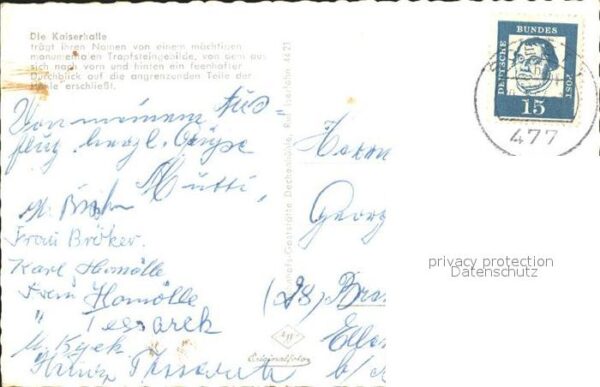 Die Kaiserhalle
trägt ihren Namen von einem mächtigen
monumentalen Tropfsteingebilde, von dem aus
sich nach vorn und hinten ein feenhafter
Durchblick auf die angrenzenden Teile der
Höhle erschließt.
Von meinem Aus=
flug herzl. Grüße
Mutti,
Frau Bröker.
Karl Homölle
Frau Homölle
" Tessarek
DEUTSCHE BUNDES POST
15
477
Herrn
Georg
(28)
privacy protection
Datenschutz
Dechenhöhle, Iserlohn 4621
Originalfoto